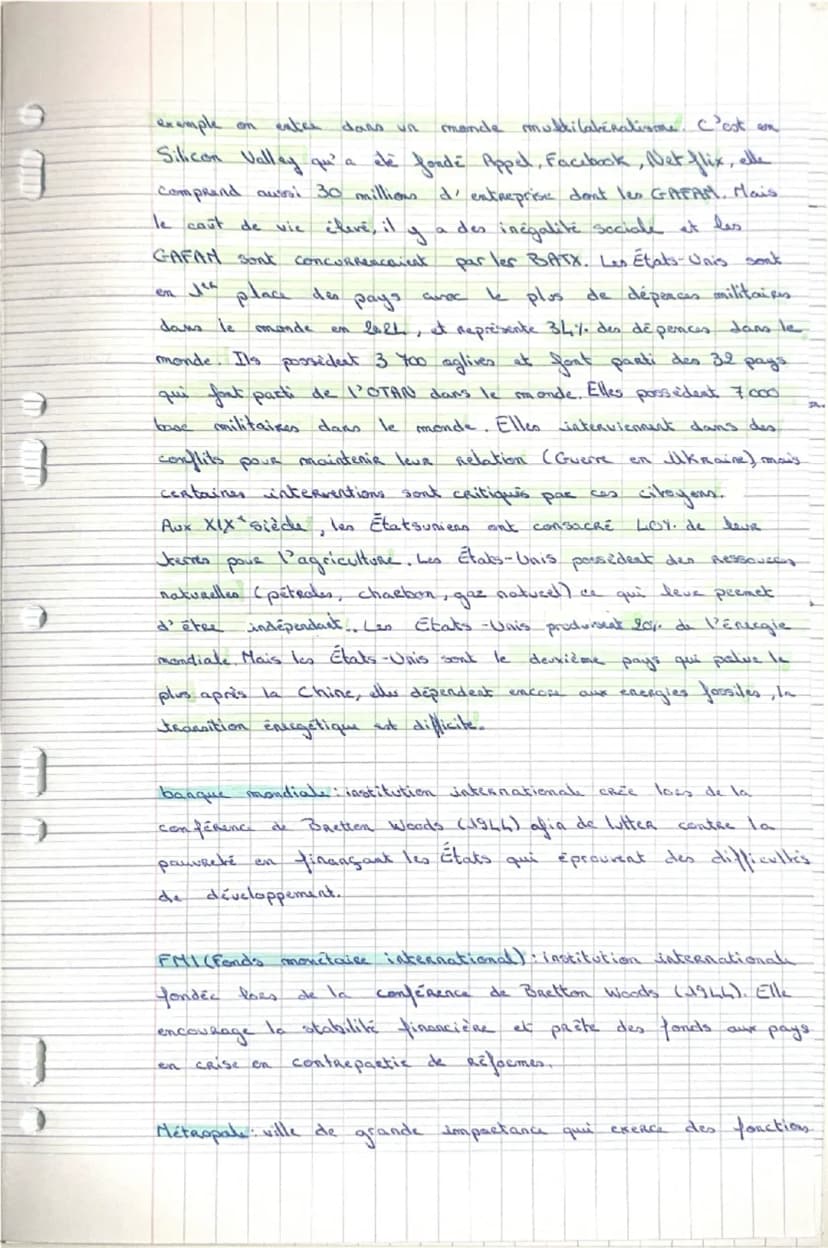 exemple on entre dans un monde multilatéralisme. C'est en
Silicon Valley qu'a été fondé Appel, Facebook, Netflix, elle
comprend aussi 30 millions d'entreprise dont les GAFAM. Mais
le coût de vie élevé, il y a des inégalité sociale et les
GAFAM sont concurrencaient par les BATX. Les États-Unis sont
en 1ère place des pays avec le plus de dépences militaires
dans le monde en 2021, et représente 34% des dépences dans le
monde. Ils possèdent 3 700 et font parti des 32 pays
qui font parti de l'OTAN dans le monde. Elles possèdent 7 000
base militaires dans le monde. Elles interviennent dans des
conflits pour maintenir leur relation (Guerre en Ukraine) mais
certaines interventions sont critiqués par ces citoyens.
Aux XIX siècle, les Étatsuniens ont consacré 40% de leur
terres pour l'agriculture. Les États-Unis possèdent des ressources
naturelles (pétroles, charbon, gaz naturel) ce qui leur permet
d'être indépendant. Les États-Unis produisent 20% de l'énergie
mondiale. Mais les États-Unis sont le deuxième pays qui polue le
plus après la Chine, elles dépendent encore aux energies fossiles, la
transition énergétique est difficile.
banque mondiale : institution internationale crée lors de la
conférence de Bretten Woods (1944) afin de lutter contre la
pauvreté en finançant les États qui éprouvent des difficultés
de développement.
FMI (Fonds monétaire international) : institution internationale
fondée lors de la conférence de Bretton Woods (1944). Elle
encourage la stabilité financière et prête des fonds aux pays
en crise en contrepartie de réformes.
Métropole : ville de grande importance qui exerce des fonction